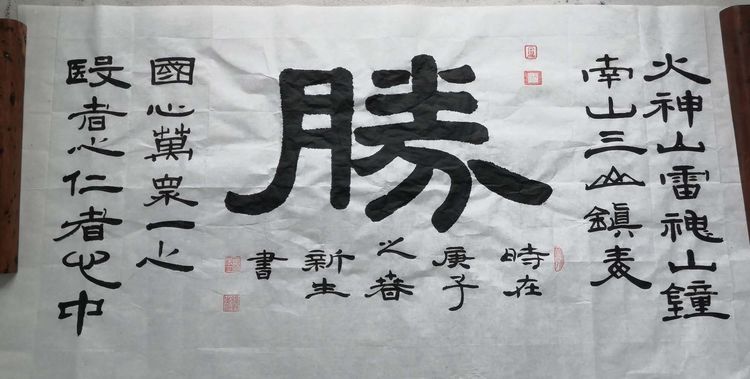 火神山雷神山鐘
南山三山鎮毒
勝
時在
庚子
之春
新生
書
國心萬眾一心
殹者心仁者心中